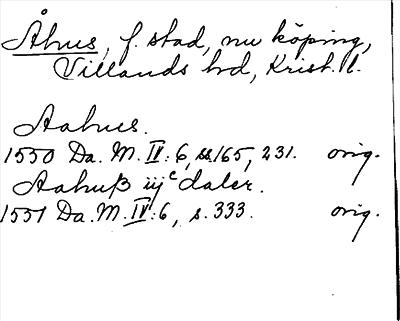 Åhus, f. stad, nu köping,
Villands hd, Krist. l.
Aahus.
1550 Da. M. IV: 6, ss. 165, 231. orig.
Aahuß iijᶜ daler.
1551 Da. M. IV: 6, s. 333. orig.